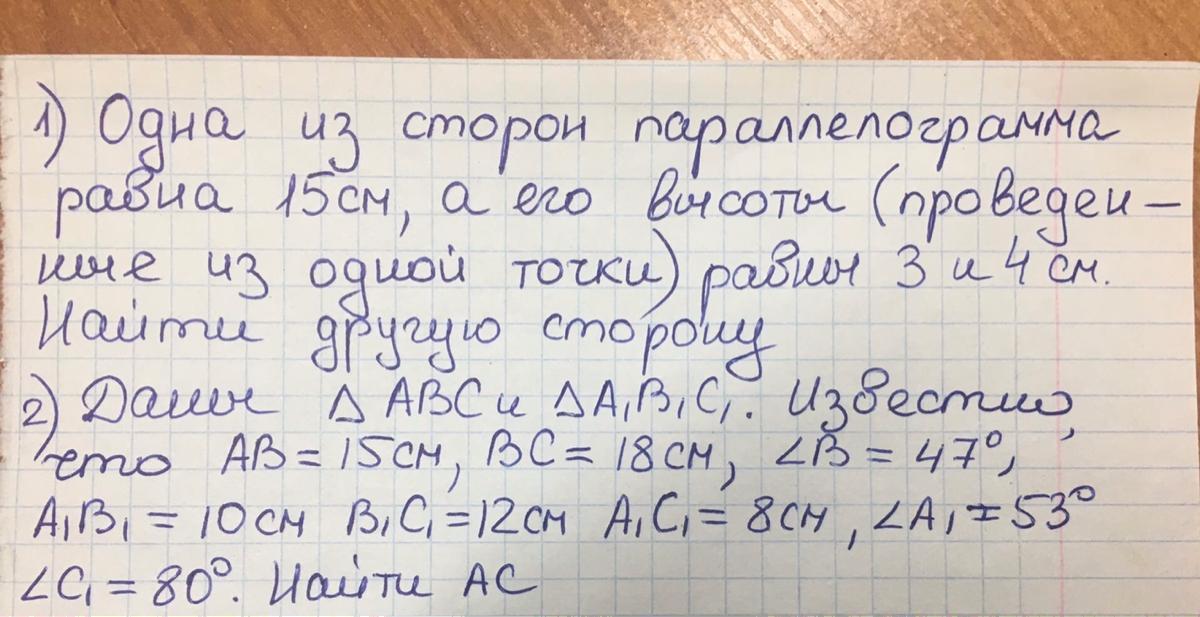 1) Одна из сторон параллелограмма
равна 15см, а его высоты (проведен-
ные из одной точки) равны 3 и 4 см.
Найти другую сторону
2) Даны ∆ ABC и ∆A₁B₁C₁. Известно,
что AB = 15см, BC = 18 см, ∠B = 47°,
A₁B₁ = 10 см B₁C₁ = 12см A₁C₁ = 8см, ∠A₁ = 53°
∠C₁ = 80°. Найти AC